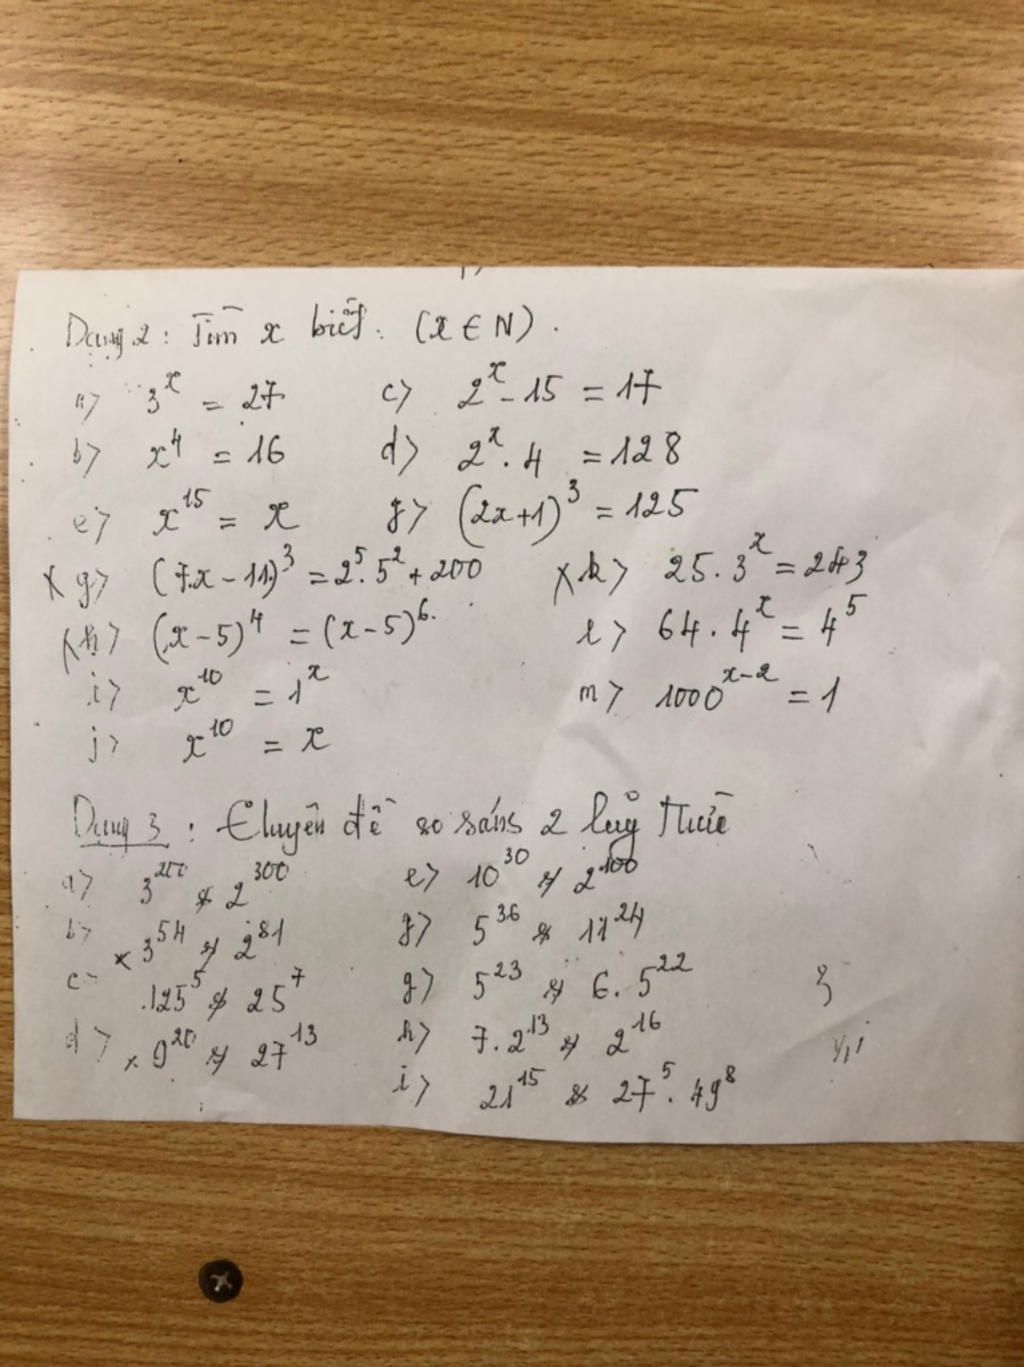 Dạng 2: Tìm x biết: (x ∈ N).
a> 3^x = 27 c> 2^x - 15 = 17
b> x^4 = 16 d> 2^x . 4 = 128
e> x^15 = x g> (2x+1)^3 = 125
x g> (7.x - 11)^3 = 2^5 . 5^2 + 200 x k> 25 . 3^x = 243
x h> (x - 5)^4 = (x - 5)^6 l> 64 . 4^x = 4^5
i> x^10 = 1^x m> 1000^(x-2) = 1
j> x^10 = x
Dạng 3: Chuyên đề so sánh 2 luỹ thừa
a> 3^200 & 2^300 e> 10^30 & 2^100
b> x 3^54 & 2^81 g> 5^36 & 11^24
c> 125^5 & 25^7 g> 5^23 & 6 . 5^22
d> x 9^20 & 27^13 h> 7 . 2^13 & 2^16
i> 21^15 & 27^5 . 49^8